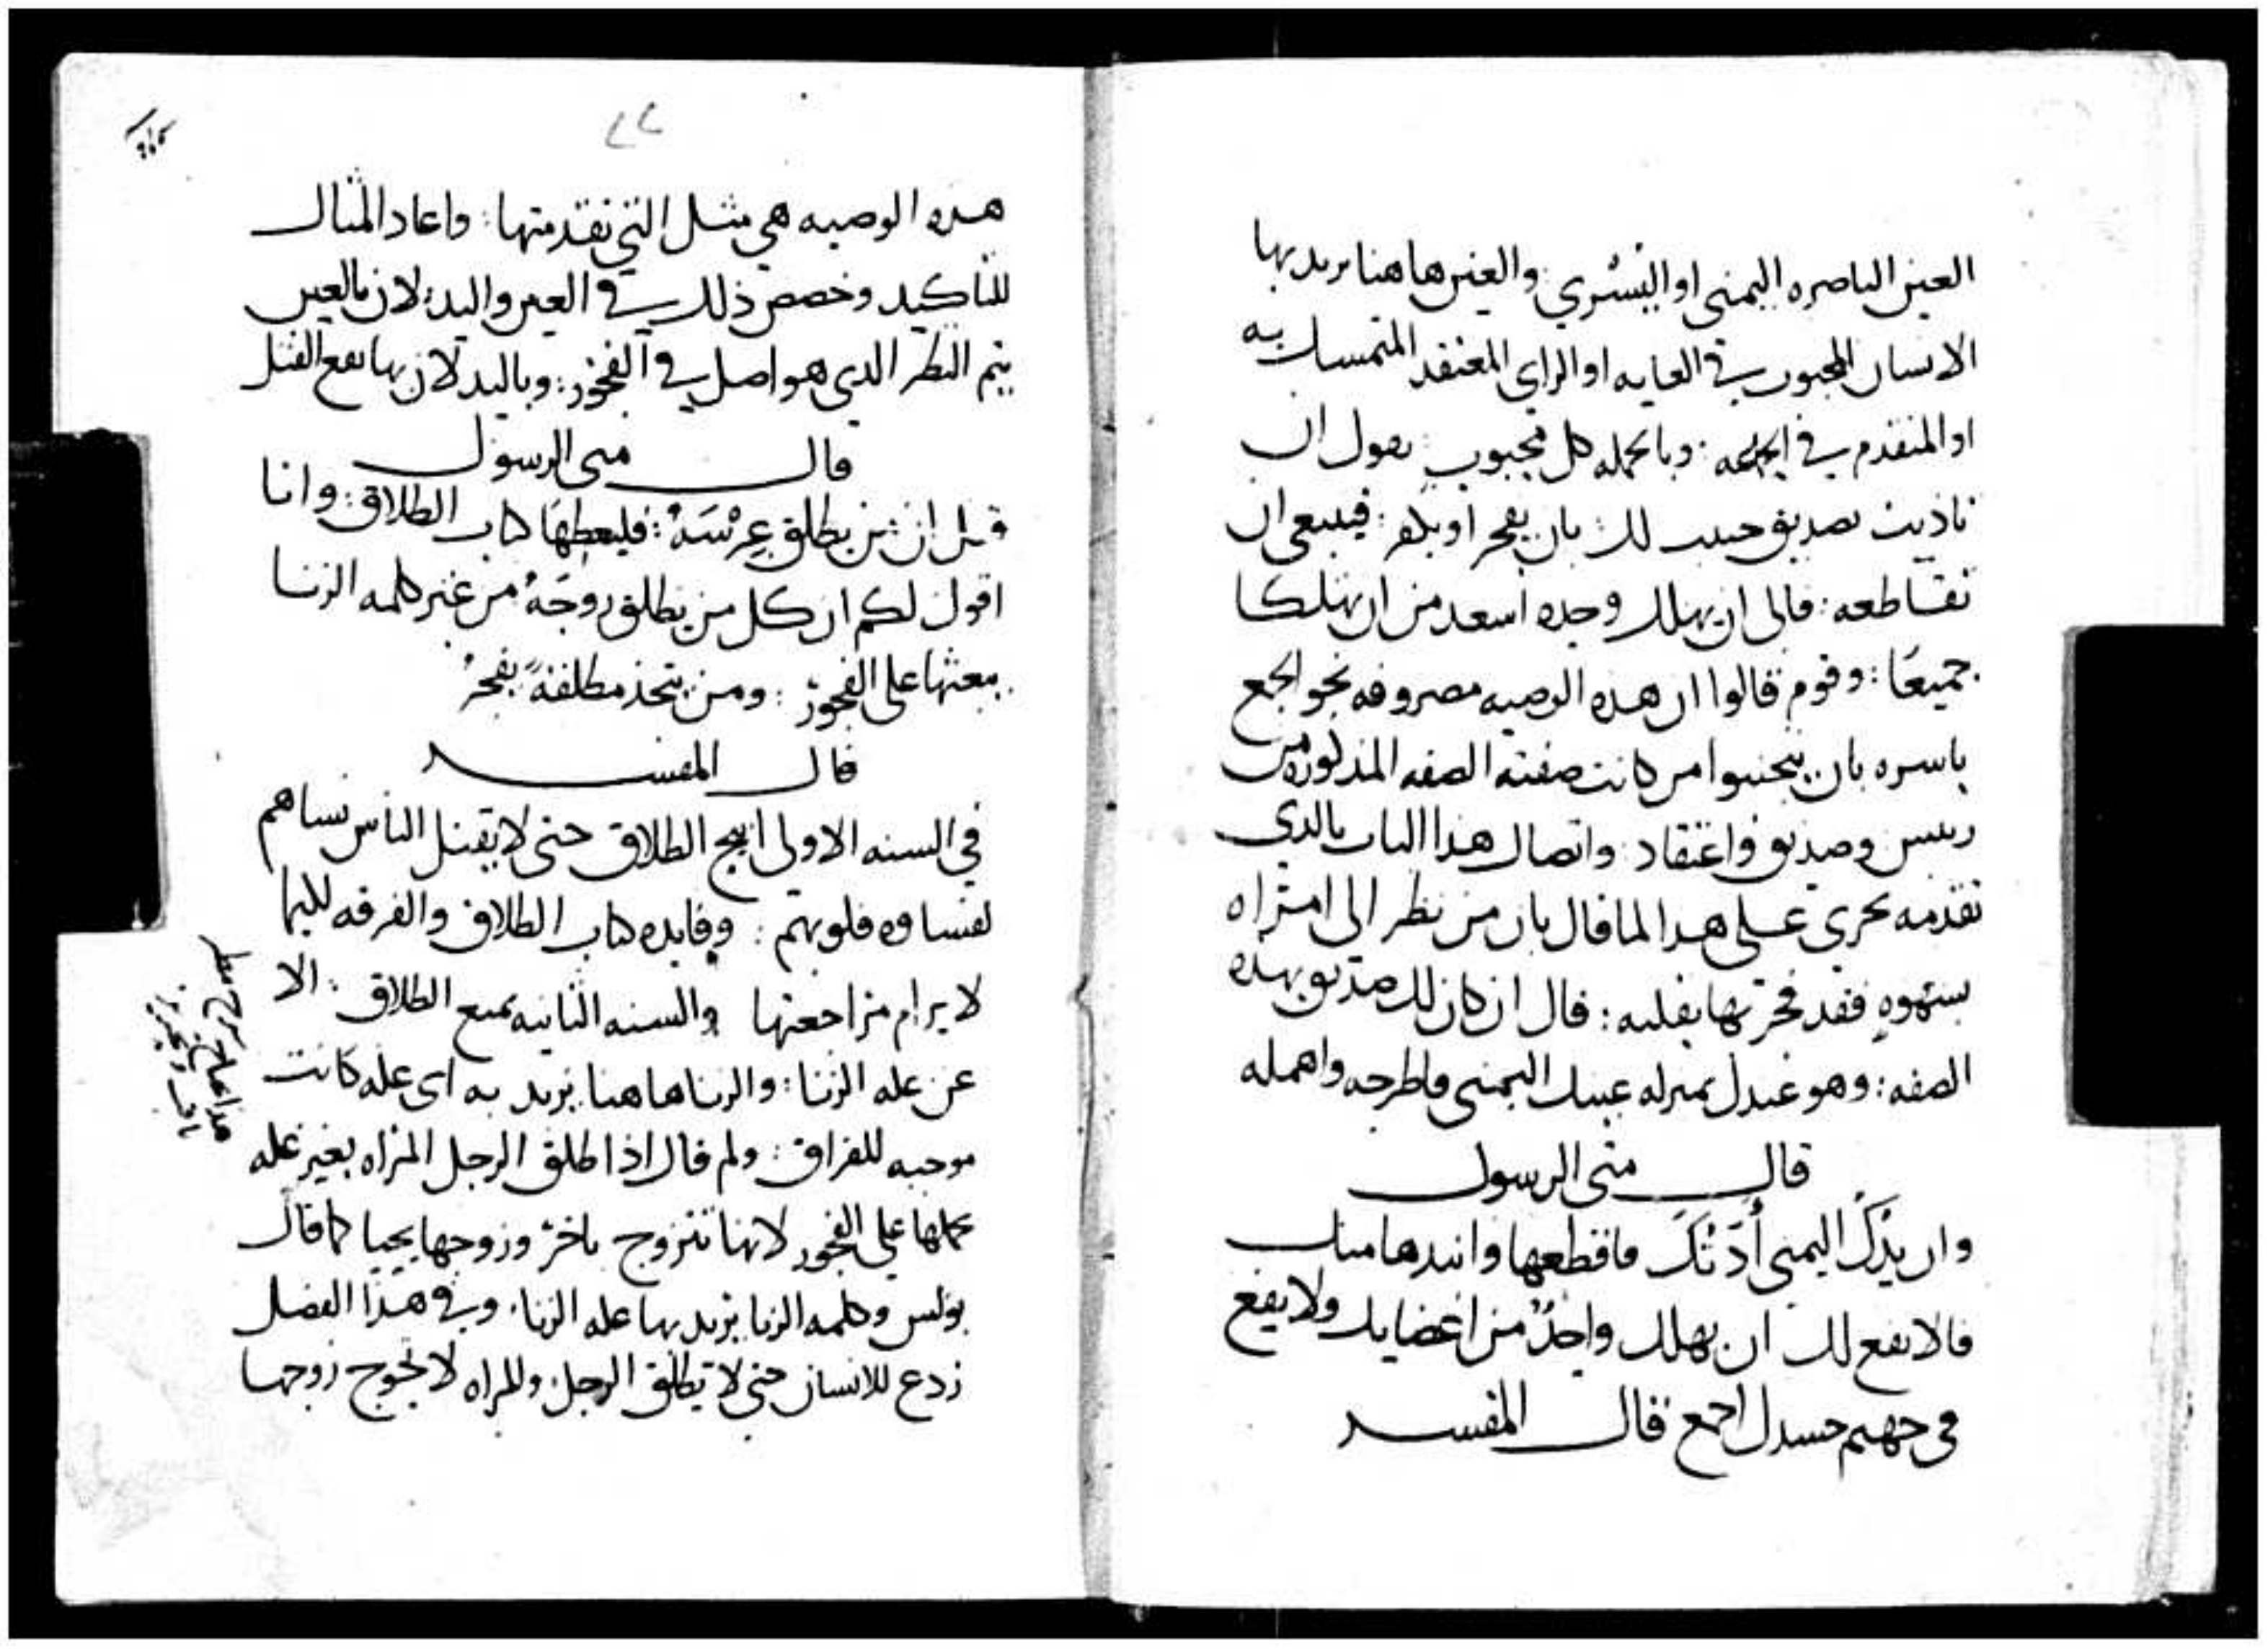 العين الباصره اليمنى او اليُسْرى والعين هاهنا يريد بها
الانسان المحبوب في الغايه او الراى المعتقد المتمسك به
او المتقدم في البيعه : وبالجمله كل محبوب يقول ان
تاذيت بصديق حبيب لك بان يفجر او يكفر : فينبغى ان
تقاطعه : فالى ان يهلك وحده اسعد من ان تهلكا
جميعًا : وقوم قالوا ان هذه الوصيه مصروفه نحو الجمع
باسره بان يتجنبوا من كانت صفته الصفه المذكوره من
رييس وصديق واعتقاد : واتصال هذا الباب بالذي
تقدمه يجرى على هذا لما قال بان من نظر الى امراه
بشهوهٍ فقد فجر بها بقلبه : قال ان كان لك صديق بهذه
الصفه : وهو عندك بمنزله عينك اليمنى فاطرحه واهمله
قال متى الرسول
وان يدُكَ اليمنى أدّتْكَ فاقطعها وانبدها منك
فالانفع لك ان يهلك واحدٌ من اعضايك ولا يقع
في جهنم جسدك اجمع قال المفسر
٢٢
هذه الوصيه هي مثل التي تقدمتها : واعاد المثال
للتاكيد وخصص ذلك في العين واليد : لان بالعين
يتم النظر الدي هو اصل في الفجور : وباليد لان بها يقع القتل
قال متى الرسول
قيل ان من يطلق عِرْسَهُ : فليعطها كتاب الطلاق : وانا
اقول لكم ان كل من يطلق زوجَهُ من غير كلمه الزنا
يبعثها على الفجور : ومن يتخذ مطلقةً يفجرُ
قال المفسر
في السنه الاولى ابيح الطلاق حتى لا يقتل الناس نساهم
لقساوه قلوبهم : وفايده كتاب الطلاق والفرقه لكيما
لا يرام مراجعتها والسنه الثانيه تمنع الطلاق : الا
عن عله الزنا : والزنا هاهنا يريد به اى عله كانت
موجبه للفراق : ولم قال اذا طلق الرجل المراه بغير عله
يحملها على الفجور لانها تتزوج باخر وزوجها يحيا كما قال
بولس وكلمه الزنا يريد بها عله الزنا . وفي هذا الفصل
ردع للانسان حتى لا يطلق الرجل . وللمراه لا تحوج زوجها